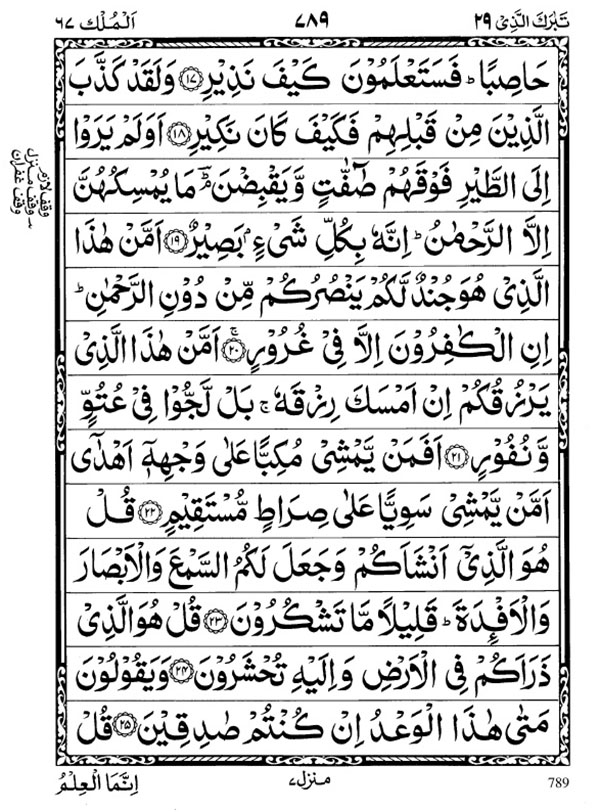 تَبٰرَكَ الَّذِىْ ٢٩
٧٨٩
اَلْمُلْك ٦٧
حَاصِبًا ؕ فَسَتَعْلَمُوْنَ كَيْفَ نَذِيْرِ ﴿۱۷﴾ وَلَقَدْ كَذَّبَ
الَّذِيْنَ مِنْ قَبْلِهِمْ فَكَيْفَ كَانَ نَكِيْرِ ﴿۱۸﴾ اَوَلَمْ يَرَوْا
اِلَى الطَّيْرِ فَوْقَهُمْ صٰٓفّٰتٍ وَّيَقْبِضْنَ ؔۘ مَا يُمْسِكُهُنَّ
اِلَّا الرَّحْمٰنُ ؕ اِنَّهٗ بِكُلِّ شَىْءٍۭ بَصِيْرٌ ﴿۱۹﴾ اَمَّنْ هٰذَا
الَّذِىْ هُوَ جُنْدٌ لَّكُمْ يَنْصُرُكُمْ مِّنْ دُوْنِ الرَّحْمٰنِ ؕ
اِنِ الْكٰفِرُوْنَ اِلَّا فِىْ غُرُوْرٍ ۚ﴿۲۰﴾ اَمَّنْ هٰذَا الَّذِىْ
يَرْزُقُكُمْ اِنْ اَمْسَكَ رِزْقَهٗ ۚ بَلْ لَّجُّوْا فِىْ عُتُوٍّ
وَّنُفُوْرٍ ﴿۲۱﴾ اَفَمَنْ يَّمْشِىْ مُكِبًّا عَلٰى وَجْهِهٖۤ اَهْدٰٓى
اَمَّنْ يَّمْشِىْ سَوِيًّا عَلٰى صِرَاطٍ مُّسْتَقِيْمٍ ﴿۲۲﴾ قُلْ
هُوَ الَّذِىْۤ اَنْشَاَكُمْ وَجَعَلَ لَكُمُ السَّمْعَ وَالْاَبْصَارَ
وَالْاَفْـِٕدَةَ ؕ قَلِيْلًا مَّا تَشْكُرُوْنَ ﴿۲۳﴾ قُلْ هُوَ الَّذِىْ
ذَرَاَكُمْ فِى الْاَرْضِ وَاِلَيْهِ تُحْشَرُوْنَ ﴿۲۴﴾ وَيَقُوْلُوْنَ
مَتٰى هٰذَا الْوَعْدُ اِنْ كُنْتُمْ صٰدِقِيْنَ ﴿۲۵﴾ قُلْ
وقف لازم
وقف منزل
وقف غفران
789
منزل ٧
اِنَّمَا الْعِلْمُ